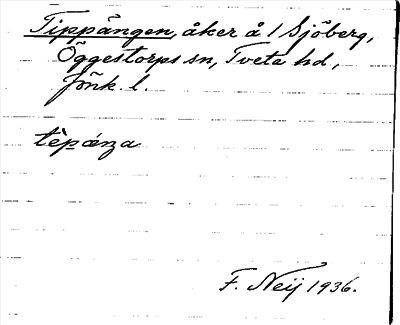 Tippängen, åker å 1 Sjöberg,
Öggestorps sn, Tveta hd,
Jönk. l.
tèpáŋa
F. Neij 1936.